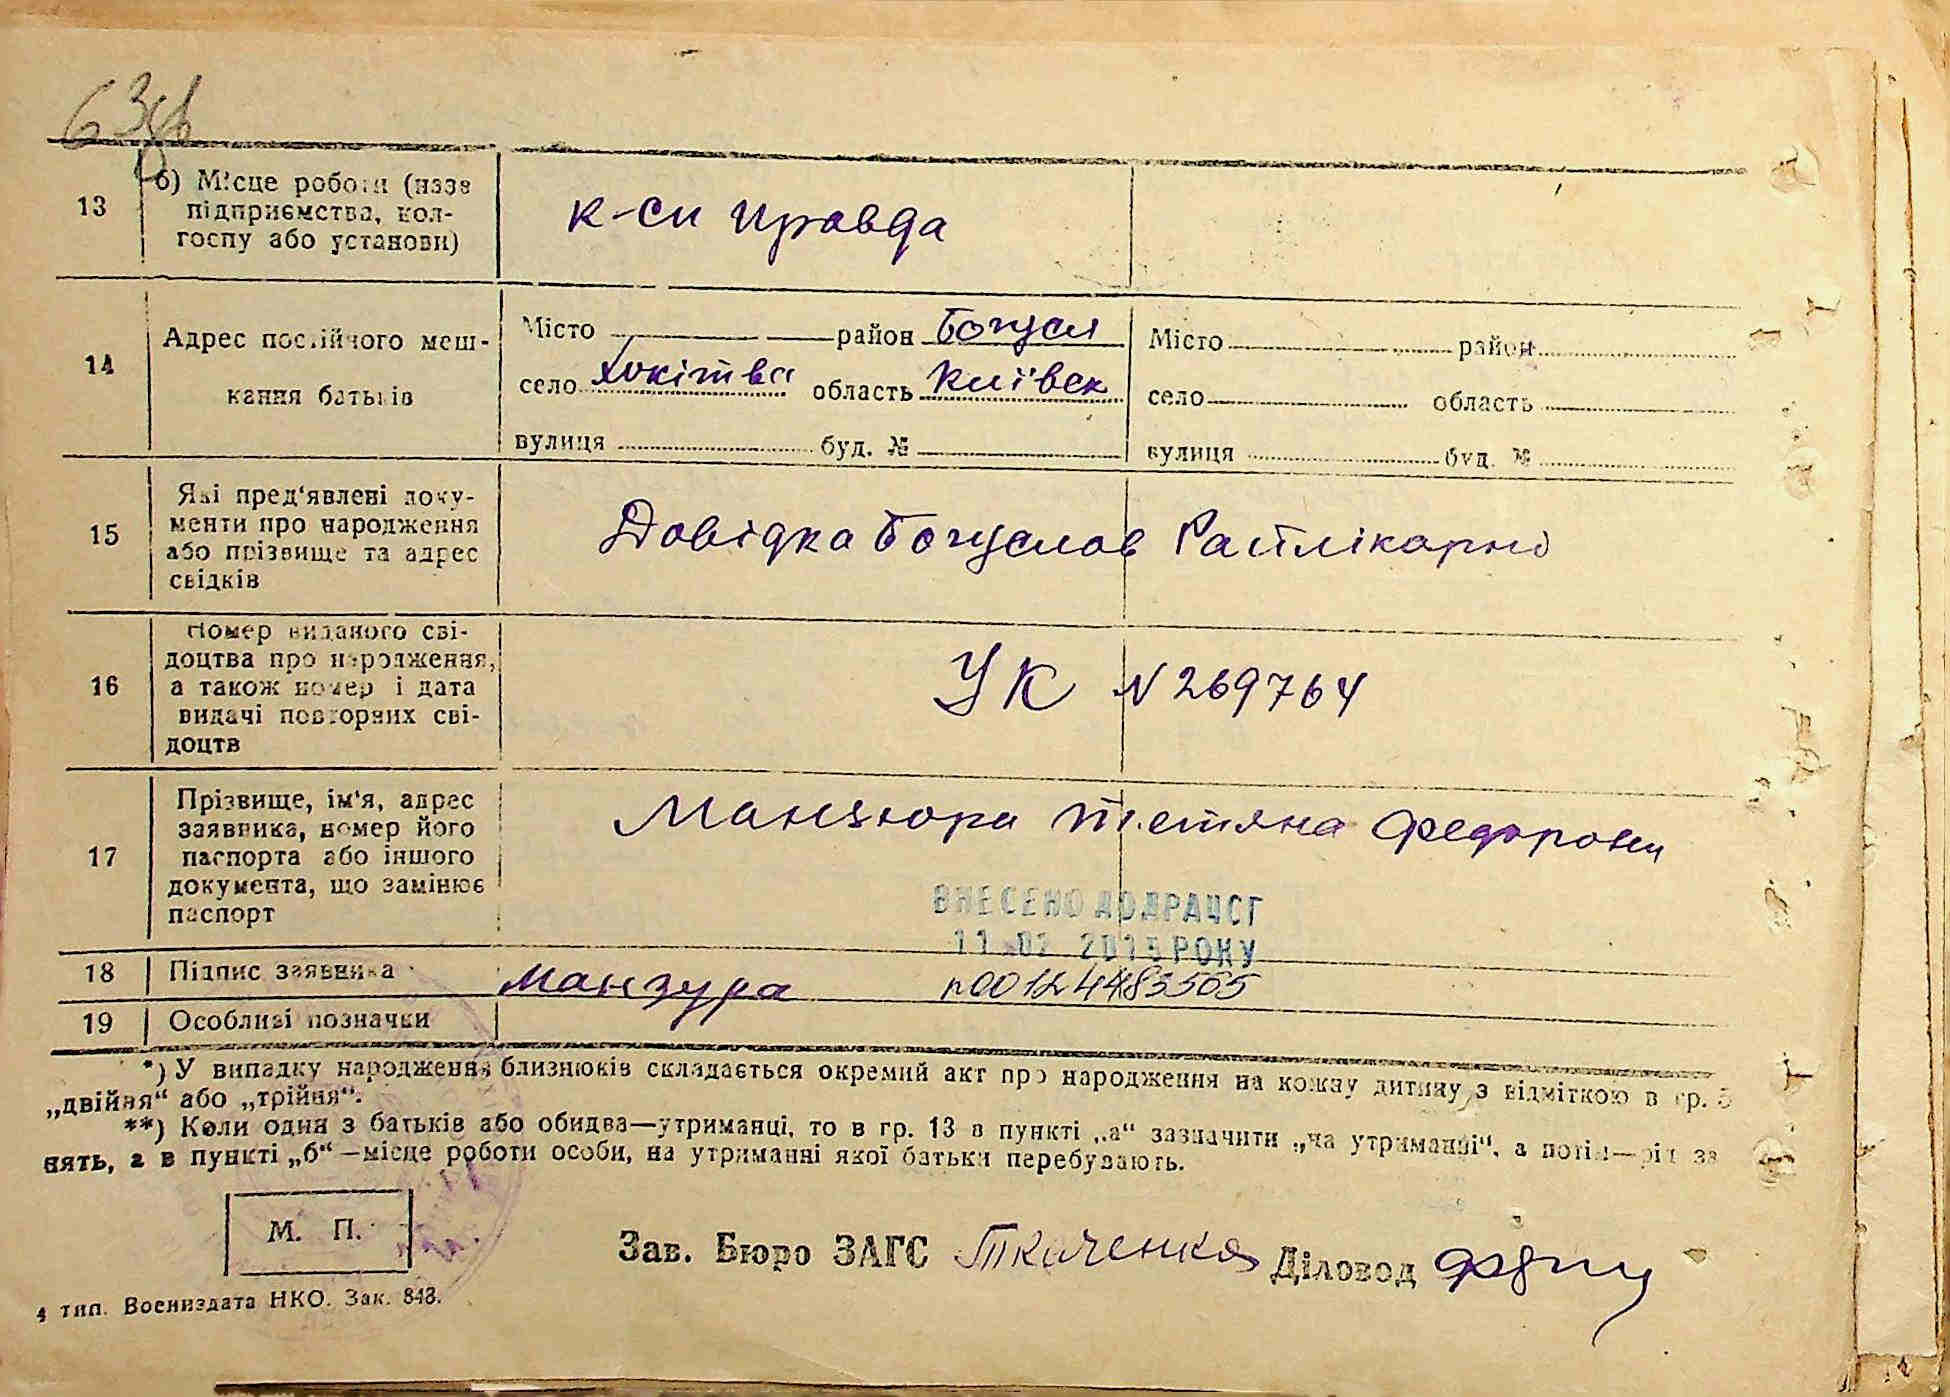 63зв
13
б) Місце роботи (назва
підприємства, кол-
госпу або установи)
к-сп правда
14
Адрес постійного меш-
кання батьків
Місто район Богусл
село Хохітва область Київск
вулиця буд. №
Місто район
село область
вулиця буд. №
15
Які пред'явлені доку-
менти про народження
або прізвище та адрес
свідків
Довідка Богуслав Райлікарні
16
Номер виданого сві-
доцтва про народження,
а також номер і дата
видачі повторних сві-
доцтв
УК N 269764
17
Прізвище, ім'я, адрес
заявника, номер його
паспорта або іншого
документа, що замінює
паспорт
Манзюра Тетяна Федоровн
ВНЕСЕНО ДО ДРАЦСГ
РОКУ
18
Підпис заявника
Манзура
n00124483505
19
Особливі позначки
*) У випадку народження близнюків складається окремий акт про народження на кожну дитину з відміткою в гр. 5
„двійня“ або „трійня“.
**) Коли один з батьків або обидва—утриманці, то в гр. 13 в пункті „а“ зазначити „на утриманні“, а потім—рід за
нять, а в пункті „б“—місце роботи особи, на утриманні якої батьки перебувають.
М. П.
Зав. Бюро ЗАГС Ткаченко Діловод
4 тип. Воениздата НКО. Зак. 848.